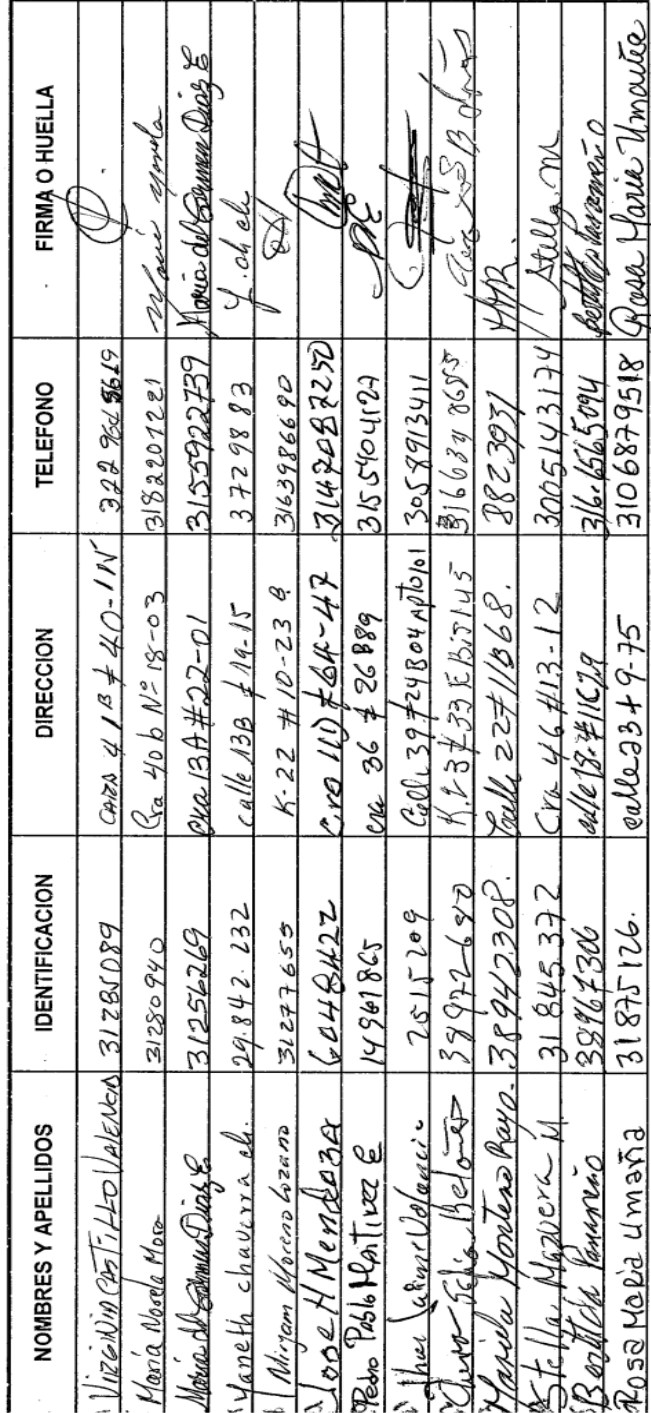 NOMBRES Y APELLIDOS IDENTIFICACION DIRECCION TELEFONO FIRMA O HUELLA
VIRGINIA CASTILLO VALENCIA 31285089 41B # 40-1N 322
Maria Morela Mora 31280940 Cra 40b Nº 18-03 3182201221
Maria del Carmen Diaz E 31256269 cra 13A #22-01 3155922739 Maria del Carmen Diaz E
Yaneth chaverra ch. 29.842.232 calle 13B # 19-15 3729883 Y. ch ch
Miryam Moreno Lozano 31277655 K-22 # 10-23 3163986690
Jose H Mendoza 6048422 Cra # 6A-47 3147087250
Pedro Pablo Martinez E 14961865 cra 36 # 26B89 3155404127 PPE
Valencia 2515209 Calle 39 #24B04 Apto101 3058913411
38972680 K.23 #33
Mariela Montero Rayo. 38942308. Calle 22#11B68. 8823931 MMR.
Stella Mazuera M 31.845.372 Cra 46 #13-12 3005143174 Stella. M
Bertilda Panameño 38967306 calle 18. #11C79 316.1565094 Bertilda Panameño
Rosa Maria Umaña 31875126. calle23 # 9-75 3106879518 Rosa Maria Umaña